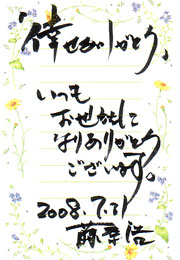 「倖せありがとう」
いつも
お世
ありがとう
ございます。
2008.7.31
藤 浩